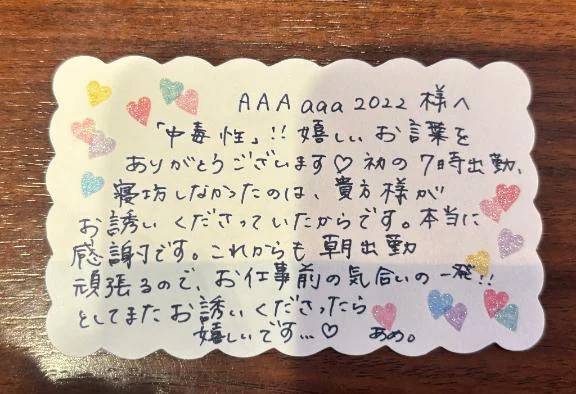 AAAaaa2022 様へ
「中毒性」!! 嬉しいお言葉を
ありがとうございます♡ 初の7時出勤、
寝坊しなかったのは、貴方様が
お誘いくださっていたからです。本当に
感謝です。これからも朝出勤
頑張るので、お仕事前の気合いの一発!!
としてまたお誘いくださったら
嬉しいです…♡ あめ。